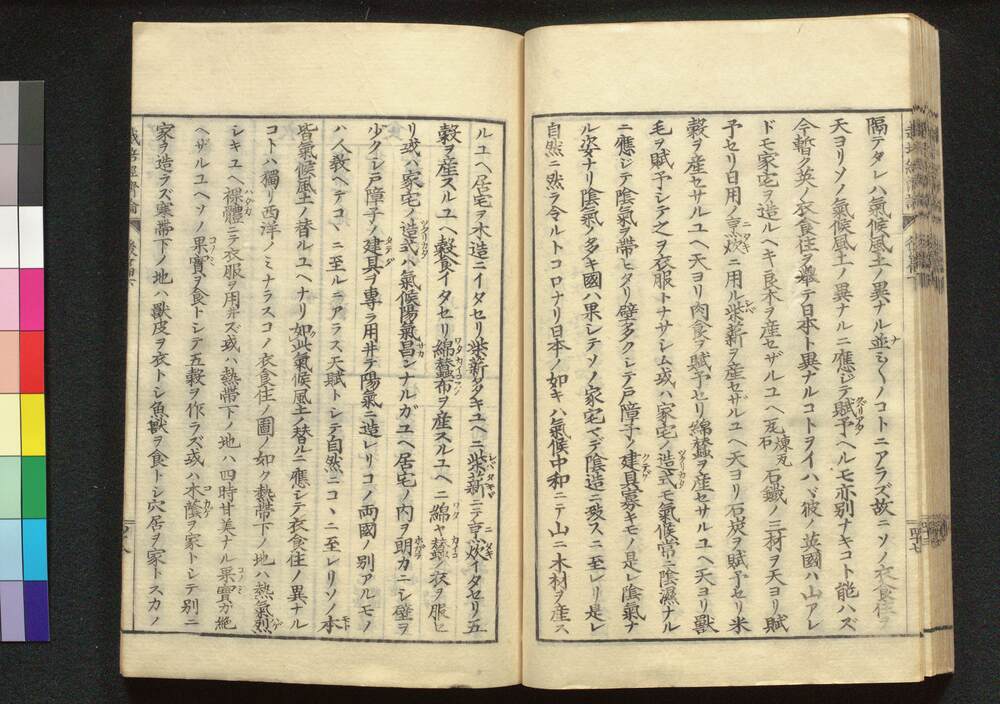 隔テタレハ氣候風土ノ異ナル並ミ〱ノコトニアラズ故ニソノ衣食住ヲ
天ヨリソノ氣候風土ノ異ナルニ應ジテ賦予ヘルモ亦別ナキコト能ハズ
今暫ク英ノ衣食住ヲ擧テ日本ト異ナルコトヲイハヾ彼ノ英國ハ山アレ
ドモ家宅ヲ造ルヘキ良木ヲ産セザルユヘ瓦石煉瓦石鐵ノ三材ヲ天ヨリ賦
予セリ日用ノ烹炊ニ用ル柴薪ヲ産セザルユヘ天ヨリ石炭ヲ賦予セリ米
穀ヲ産セサルユヘ天ヨリ肉食ヲ賦予セリ綿蠶ヲ産セサルユヘ天ヨリ獸
毛ヲ賦予シテ之ヲ衣服トナサシム或ハ家宅ノ造式モ氣候常ニ陰濕ナル
ニ應シテ陰氣ヲ帶ヒタリ壁多クシテ戸障子ノ建具寡キモノ是レ陰氣ナ
ル姿ナリ陰氣ノ多キ國ハ果シテソノ家宅マデ陰造ニ致スニ至レリ是レ
自然ニ然ラ令ルトコロナリ日本ノ如キハ氣候中和ニテ山ニ木材ヲ産ス
ルユヘ居宅ヲ木造ニイタセリ柴薪多キユヘニ柴薪ニテ烹炊イタセリ五
穀ヲ産スルユヘ穀食イタセリ綿蠶布ヲ産スルユヘニ綿ヤ蠶ノ衣ヲ服セ
リ或ハ家宅ノ造式ハ氣候陽氣昌ンナルガユヘ居宅ノ内ヲ朗カニシ壁ヲ
少クシ戸障子ノ建具ヲ專ラ用井テ陽氣ニ造レリコノ兩國ノ別アルモノ
ハ人教ヘテコヽニ至ルニアラス天賦トシテ自然ニコヽニ至レリソノ本
皆氣候風土ノ替ルユヘナリ如此氣候風土替ルニ應シテ衣食住ノ異ナル
コトハ獨リ西洋ノミナラスコノ衣食住ノ圖ノ如ク熱帶下ノ地ハ熱氣烈
シキユヘ裸體ニテ衣服ヲ用井ズ或ハ熱帶下ノ地ハ四時甘美ナル果實ガ絶
ヘザルユヘソノ果實ヲ食トシテ五穀ヲ作ラズ或ハ木蔭ヲ家トシテ別ニ
家ヲ造ラズ寒帶下ノ地ハ獸皮ヲ衣トシ魚獸ヲ食トシ穴居ヲ家トスカノ